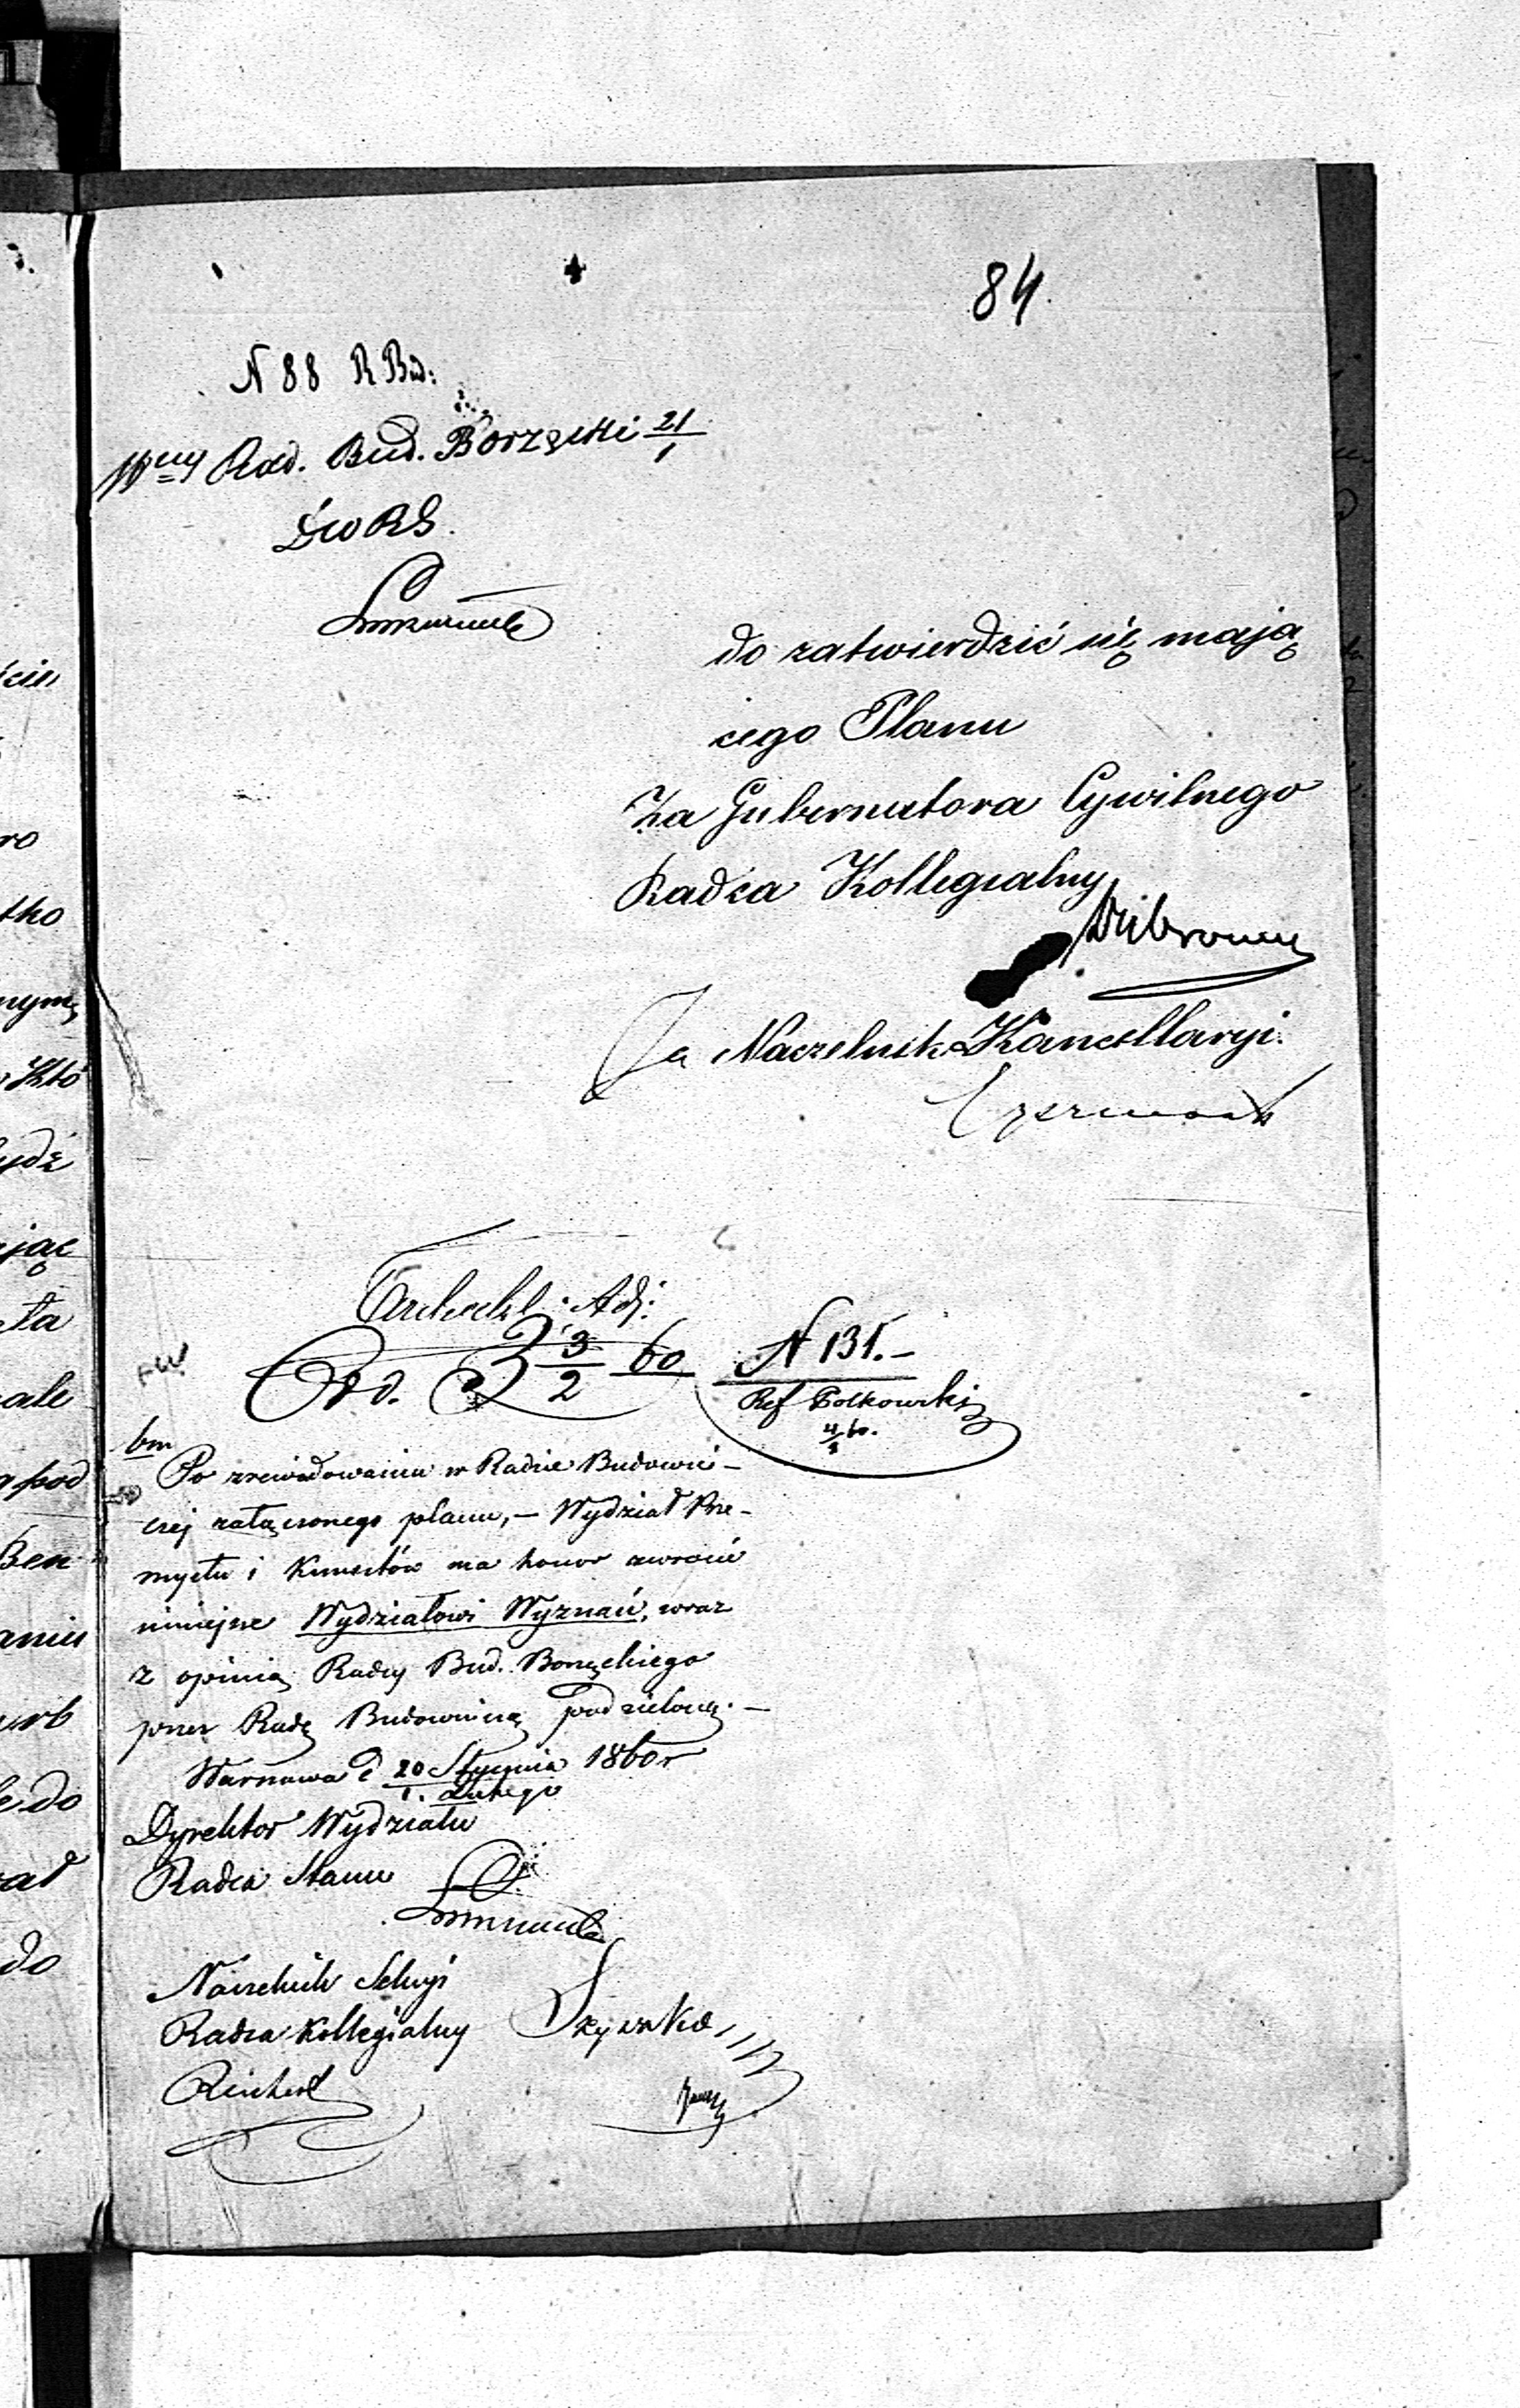 84.
N 88 R Bud:
Wny Rad. Bud. Borzęcki 21/1
do zatwierdzić się mają
cego Planu
Za Gubernatora Cywilnego
Radca Kollegialny
Za Naczelnika Kancellaryi.
Adj:
3/2 60 N 131.—
Ref Polkowski
bm
Po zrewidowaniu w Radzie Budowni-
czej załączonego planu, — Wydział Prze-
mysłu i Kunsztów ma honor zwrócić
niniejsze Wydziałowi Wyznań, wraz
z opinią Radcy Bud. Borzęckiego
przez Radę Budowniczą podzieloną. —
Warszawa d 20 Stycznia 1860 r
1. Lutego
Dyrektor Wydziału
Radca Stanu
Naczelnik Sekcyi
Radca Kollegialny
ście
ro
tko
nymę
Któ
jąc
ta
ale
pod
Ben
aniu
do
ał
do